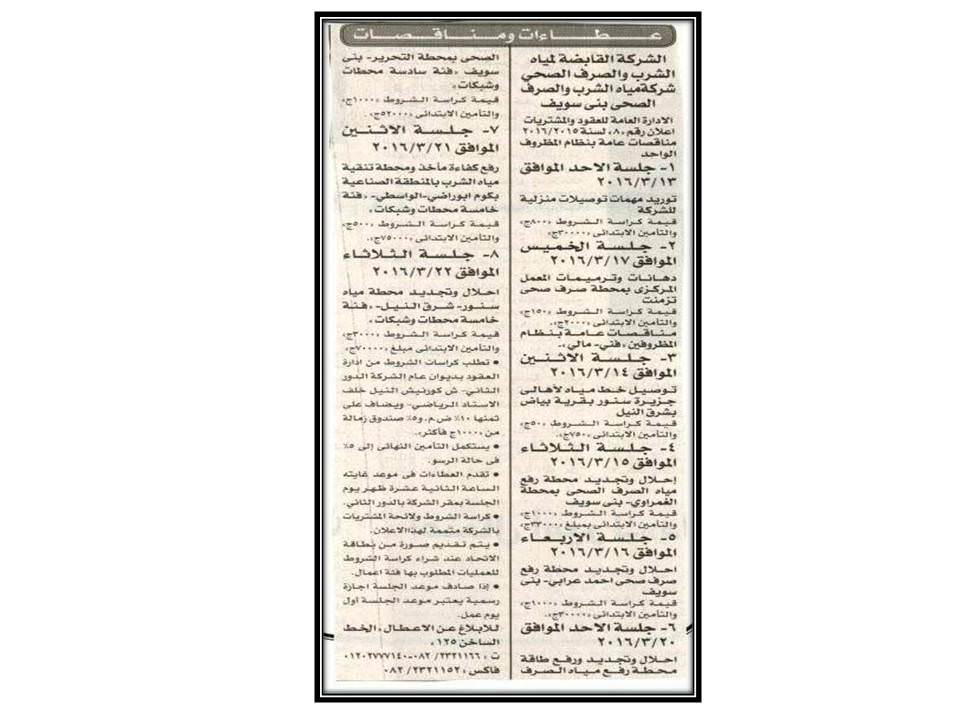 عطاءات ومناقصات
الشركة القابضة لمياه
الشرب والصرف الصحي
شركة مياه الشرب والصرف
الصحى بنى سويف
الادارة العامة للعقود والمشتريات
اعلان رقم «٨» لسنة ٢٠١٦/٢٠١٥
مناقصات عامة بنظام المظروف
الواحد
١- جلسة الاحد الموافق
٢٠١٦/٣/١٣
توريد مهمات توصيلات منزلية
للشركة
قيمة كراسة الشروط «٨٠٠ج»
والتأمين الابتدائى «٣٠٠٠٠ج»
٢- جلسة الخميس
الموافق ٢٠١٦/٣/١٧
دهانات وترميمات المعمل
المركزى بمحطة صرف صحى
تزمنت
قيمة كراسة الشروط «١٥٠ج»
والتأمين الابتدائى «٢٠٠٠ج».
مناقصات عامة بنظام
المظروفين «فني- مالي».
٣- جلسة الاثنين
الموافق ٢٠١٦/٣/١٤
توصيل خط مياه لأهالى
جزيرة سنور بقرية بياض
بشرق النيل
قيمة كراسة الشروط «٥٠ج»
والتأمين الابتدائى «٧٥٠ج».
٤- جلسة الثلاثاء
الموافق ٢٠١٦/٣/١٥
إحلال وتجديد محطة رفع
مياه الصرف الصحى بمحطة
الغمراوي- بنى سويف
قيمة كراسة الشروط «١٠٠٠ج»
والتأمين الابتدائى بمبلغ «٣٣٠٠٠ج»
٥- جلسة الاربعاء
الموافق ٢٠١٦/٣/١٦
احلال وتجديد محطة رفع
صرف صحى احمد عرابي- بنى
سويف
قيمة كراسة الشروط «١٠٠٠ج»
والتأمين الابتدائى «٣٠٠٠٠ج».
٦- جلسة الاحد الموافق
٢٠١٦/٣/٢٠
احلال وتجديد ورفع طاقة
محطة رفع مياه الصرف
الصحى بمحطة التحرير- بنى
سويف «فئة سادسة محطات
وشبكات»
قيمة كراسة الشروط «١٠٠٠ج»
والتأمين الابتدائى «٥٢٠٠٠ج».
٧- جلسة الاثنين
الموافق ٢٠١٦/٣/٢١
رفع كفاءة مأخذ ومحطة تنقية
مياه الشرب بالمنطقة الصناعية
بكوم ابوراضي-الواسطي- «فئة
خامسة محطات وشبكات»
قيمة كراسة الشروط «٥٠٠ج»
والتأمين الابتدائى «٧٥٠٠٠ج».
٨- جلسة الثلاثاء
الموافق ٢٠١٦/٣/٢٢
احلال وتجديد محطة مياه
سنور- شرق النيل- «فئة
خامسة محطات وشبكات»
قيمة كراسة الشروط «٣٠٠٠ج»
والتأمين الابتدائى مبلغ «٧٠٠٠٠ج»
• تطلب كراسات الشروط من ادارة
العقود بديوان عام الشركة الدور
الثاني- ش كورنيش النيل خلف
الاستاد الرياضي- ويضاف على
ثمنها ١٠٪ ض.م. و٥٪ صندوق زمالة
من «١٠٠٠ج فأكثر».
• يستكمل التأمين النهائى إلى ٥٪
فى حالة الرسو.
• تقدم العطاءات فى موعد غايته
الساعة الثانية عشرة ظهر يوم
الجلسة بمقر الشركة بالدور الثاني.
• كراسة الشروط ولائحة المشتريات
بالشركة متممة لهذا الاعلان.
• يتم تقديم صورة من بطاقة
الاتحاد عند شراء كراسة الشروط
للعمليات المطلوب بها فئة اعمال.
• إذا صادف موعد الجلسة اجازة
رسمية يعتبر موعد الجلسة أول
يوم عمل.
للابلاغ عن الاعطال «الخط
الساخن ١٢٥»
ت: ٠٨٢/٢٣٢١١٦٦-٠١٢٠٢٧٧٧١٤٠
فاكس: ٠٨٢/٢٣٢١١٥٢